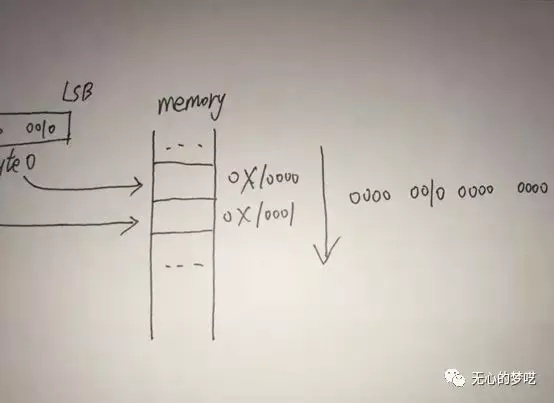 LSB
memory
0010
yte 0
0X10000
0X10001
0000 0010 0000 0000
无心的梦呓